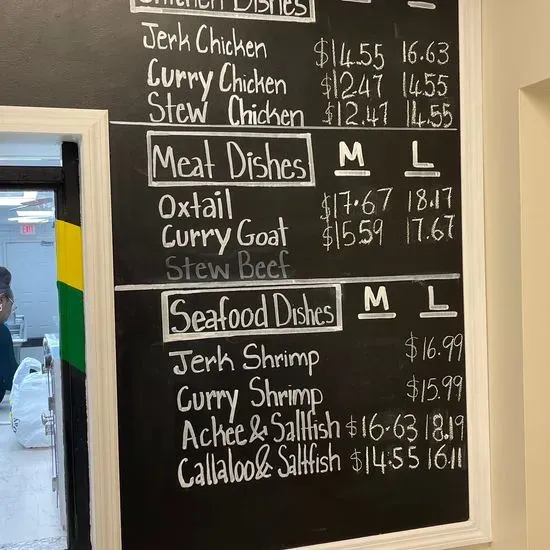 Chicken Dishes
Jerk Chicken $14.55 16.63
Curry Chicken $12.47 14.55
Stew Chicken $12.47 14.55
Meat Dishes M L
Oxtail $17.67 18.17
Curry Goat $15.59 17.67
Stew Beef
Seafood Dishes M L
Jerk Shrimp $16.99
Curry Shrimp $15.99
Ackee & Saltfish $16.63 18.19
Callaloo & Saltfish $14.55 16.11